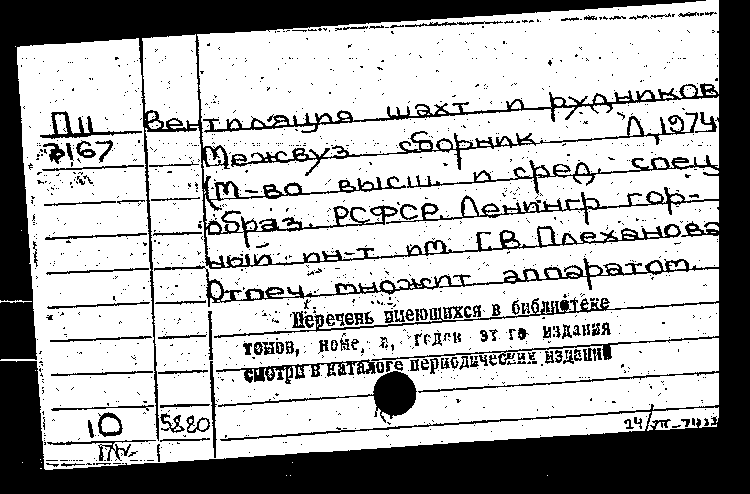 П11 Вентиляция шахт и рудников
З167 Межвуз. сборник. Л., 1974
(М-во высш. и сред. спец.
образ. РСФСР. Ленингр. гор-
ный ин-т им. Г.В. Плеханова
Отпеч. множит. аппаратом.
Перечень имеющихся в библиотеке
томов, номе, в, годов этго издания
смотри в каталоге периодических изданий
10 5880